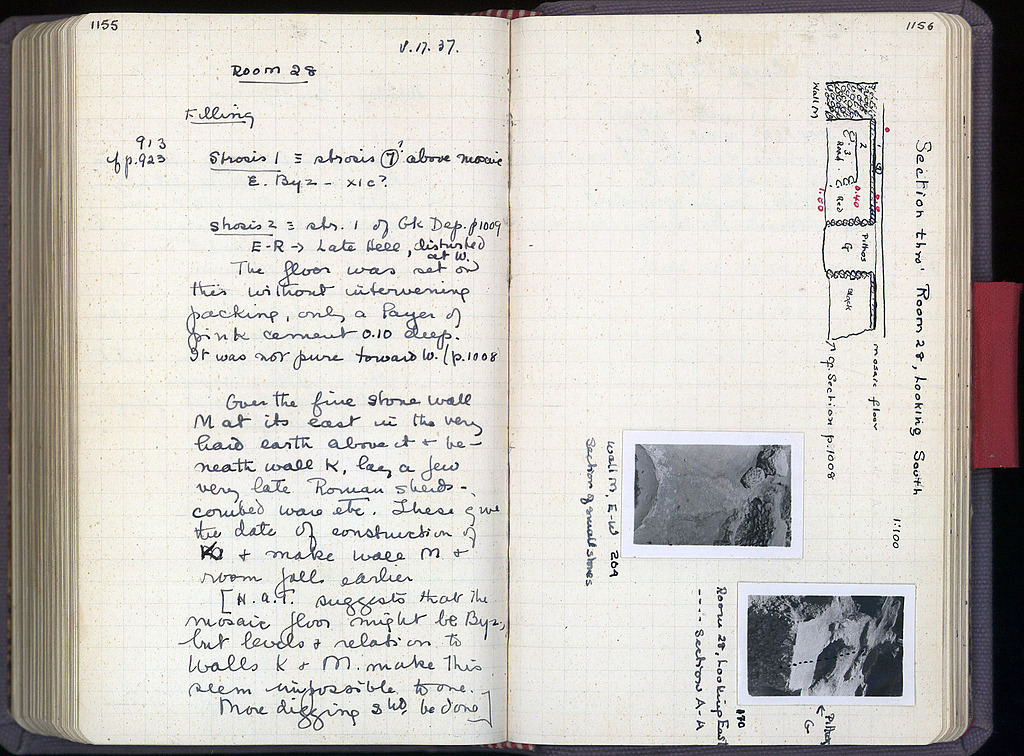 1155
V.17.37.
Room 28
Filling
913
cf p.923
Strosis 1 ≡ strosis 7? above mosaic
E. Byz – XI c?
Strosis 2 ≡ str. 1 of Gk Dep. p1009
E-R → Late Hell, disturbed
at W.
The floor was set on
this without intervening
packing, only a layer of
pink cement 0.10 deep.
It was not pure toward W. (p.1008
Over the fine stone wall
M at its east in the very
hard earth above it + be-
neath wall K, lay a few
very late Roman sherds –
combed ware etc. These give
the date of construction of
K + make wall M +
room falls earlier
[H.A.T. suggests that the
mosaic floor might be Byz,
but levels + relation to
Walls K + M. make this
seem impossible to one.
More digging shd be done]
1156
Section thro' Room 28, Looking South
1:100
Wall M
1
7
2
3
Road
Red
0.40
1.60
Pithos
G
Black
mosaic floor
↗ cp. Section p.1008
Wall M, E-W 209
Section of small stones
Room 28, Looking East 190
---- Section A-A
← Pithos
G